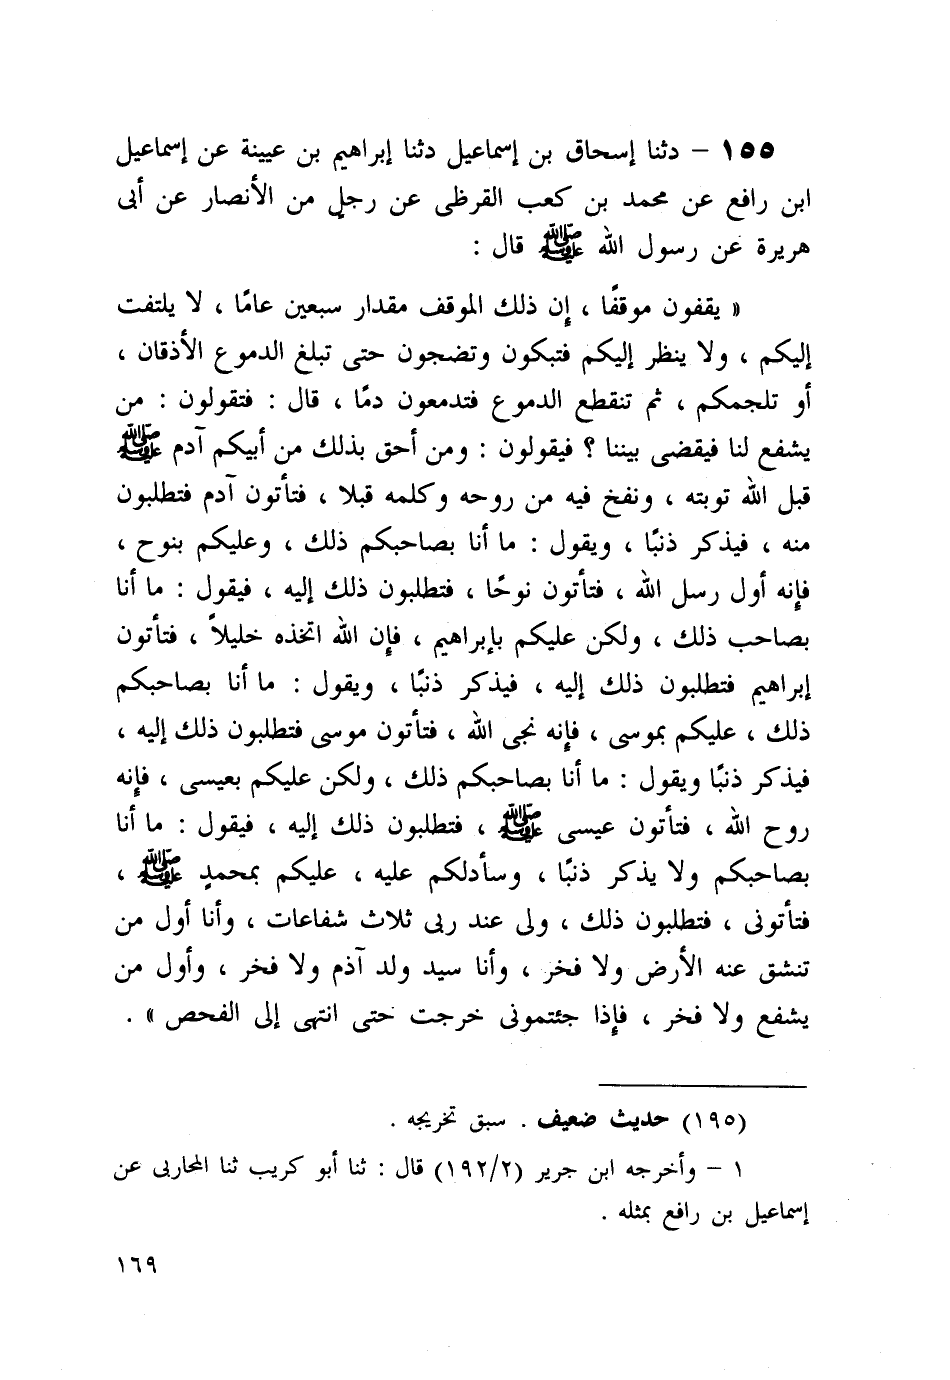 ١٥٥ – دثنا إسحاق بن إسماعيل دثنا إبراهيم بن عيينة عن إسماعيل
ابن رافع عن محمد بن كعب القرظى عن رجل من الأنصار عن أبى
هريرة عن رسول الله ﷺ قال :
« يقفون موقفًا ، إن ذلك الموقف مقدار سبعين عامًا ، لا يلتفت
إليكم ، ولا ينظر إليكم فتبكون وتضجون حتى تبلغ الدموع الأذقان ،
أو تلجمكم ، ثم تنقطع الدموع فتدمعون دمًا ، قال : فتقولون : من
يشفع لنا فيقضى بيننا ؟ فيقولون : ومن أحق بذلك من أبيكم آدم ﷺ
قبل الله توبته ، ونفخ فيه من روحه وكلمه قبلا ، فتأتون آدم فتطلبون
منه ، فيذكر ذنبًا ، ويقول : ما أنا بصاحبكم ذلك ، وعليكم بنوح ،
فإنه أول رسل الله ، فتأتون نوحًا ، فتطلبون ذلك إليه ، فيقول : ما أنا
بصاحب ذلك ، ولكن عليكم بإبراهيم ، فإن الله اتخذه خليلاً ، فتأتون
إبراهيم فتطلبون ذلك إليه ، فيذكر ذنبًا ، ويقول : ما أنا بصاحبكم
ذلك ، عليكم بموسى ، فإنه نجى الله ، فتأتون موسى فتطلبون ذلك إليه ،
فيذكر ذنبًا ويقول : ما أنا بصاحبكم ذلك ، ولكن عليكم بعيسى ، فإنه
روح الله ، فتأتون عيسى ﷺ ، فتطلبون ذلك إليه ، فيقول : ما أنا
بصاحبكم ولا يذكر ذنبًا ، وسأدلكم عليه ، عليكم بمحمدٍ ﷺ ،
فتأتونى ، فتطلبون ذلك ، ولى عند ربى ثلاث شفاعات ، وأنا أول من
تنشق عنه الأرض ولا فخر ، وأنا سيد ولد آدم ولا فخر ، وأول من
يشفع ولا فخر ، فإذا جئتمونى خرجت حتى انتهى إلى الفحص » .
(١٩٥) حديث ضعيف . سبق تخريجه .
١ – وأخرجه ابن جرير (١٩٢/٢) قال : ثنا أبو كريب ثنا المحاربى عن
إسماعيل بن رافع بمثله .
١٦٩